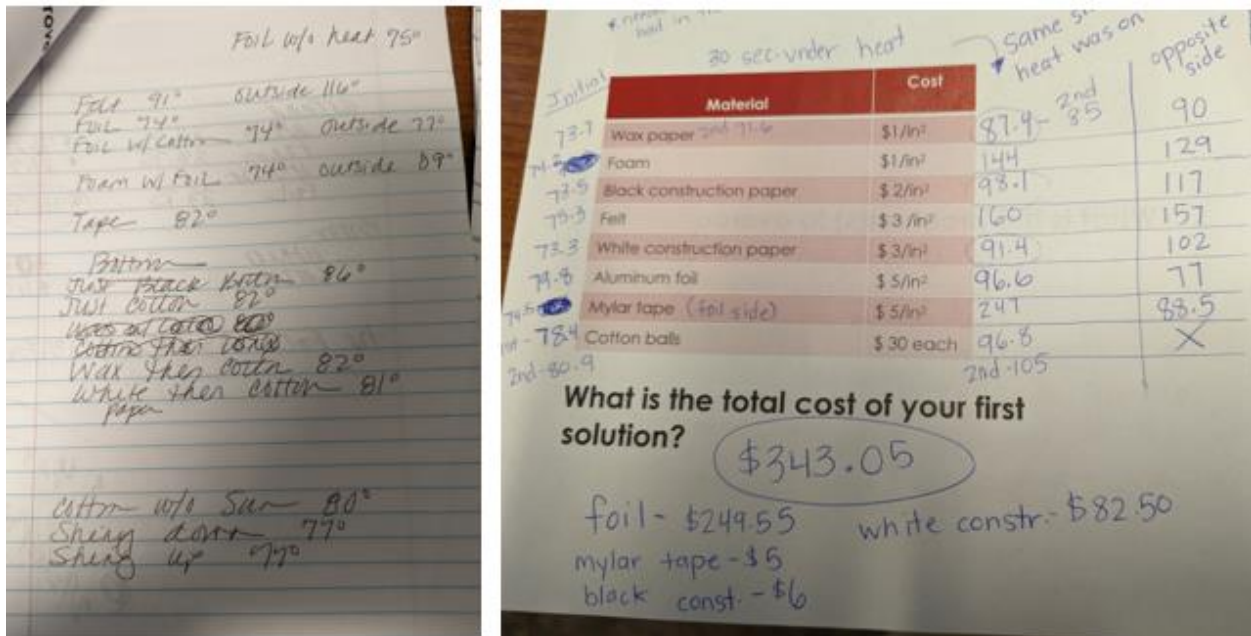 Foil w/o heat 75°
Felt 91° outside 116°
Foil 74°
Foil w/ Cotton 74° outside 77°
Foam w/ Foil 74° outside 89°
Tape 82°
Bottom
Just Black 86°
Just Cotton 82°
Wax then Cotton 82°
White then Cotton 81°
paper
Cotton w/o Sun 80°
Shiny down 77°
Shiny up 77°
had in
30 sec. under heat
Same
heat was on
opposite
side
Initial
Material Cost
73.7 Wax paper 2nd 71.6 $1/in² 87.4 - 2nd 85 90
Foam $1/in² 144 129
73.5 Black construction paper $ 2/in² 98.1 117
75.3 Felt $ 3 /in² 160 157
73.3 White construction paper $ 3/in² 91.4 102
79.8 Aluminum foil $ 5/in² 96.6 77
74.5 Mylar tape (foil side) $ 5/in² 247 88.5
78.4 Cotton balls $ 30 each 96.8 X
2nd - 80.9 2nd - 105
What is the total cost of your first
solution?
$343.05
foil - $249.55 white constr. - $82.50
mylar tape - $5
black const. - $6